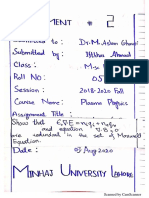 MENT # 2
Submitted to: Dr. M. Aslam Ghani
Submitted by: Iftkhar Ahmad
Class: M.
Roll No: 05
Session: 2018-2020 Fall
Course Name: Plasma Physics
Assignment Title:
Show that ε₀∇.E = niqi + neqe
and equation ∇.B = 0
are redundant in the set of Maxwell
Equation.
Date: 05 Aug 2020
MINHAJ UNIVERSITY LAHORE
Scanned by CamScanner